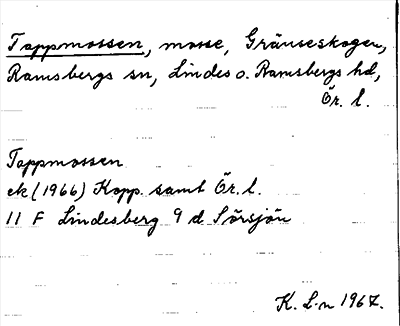 Tappmossen, mosse, Gränseskogen,
Ramsbergs sn, Lindes o. Ramsbergs hd,
Ör. l.
Tappmossen
ek (1966) Kopp. samt Ör. l.
11 F Lindesberg 9 d Sörsjön
K. L-n 1967.